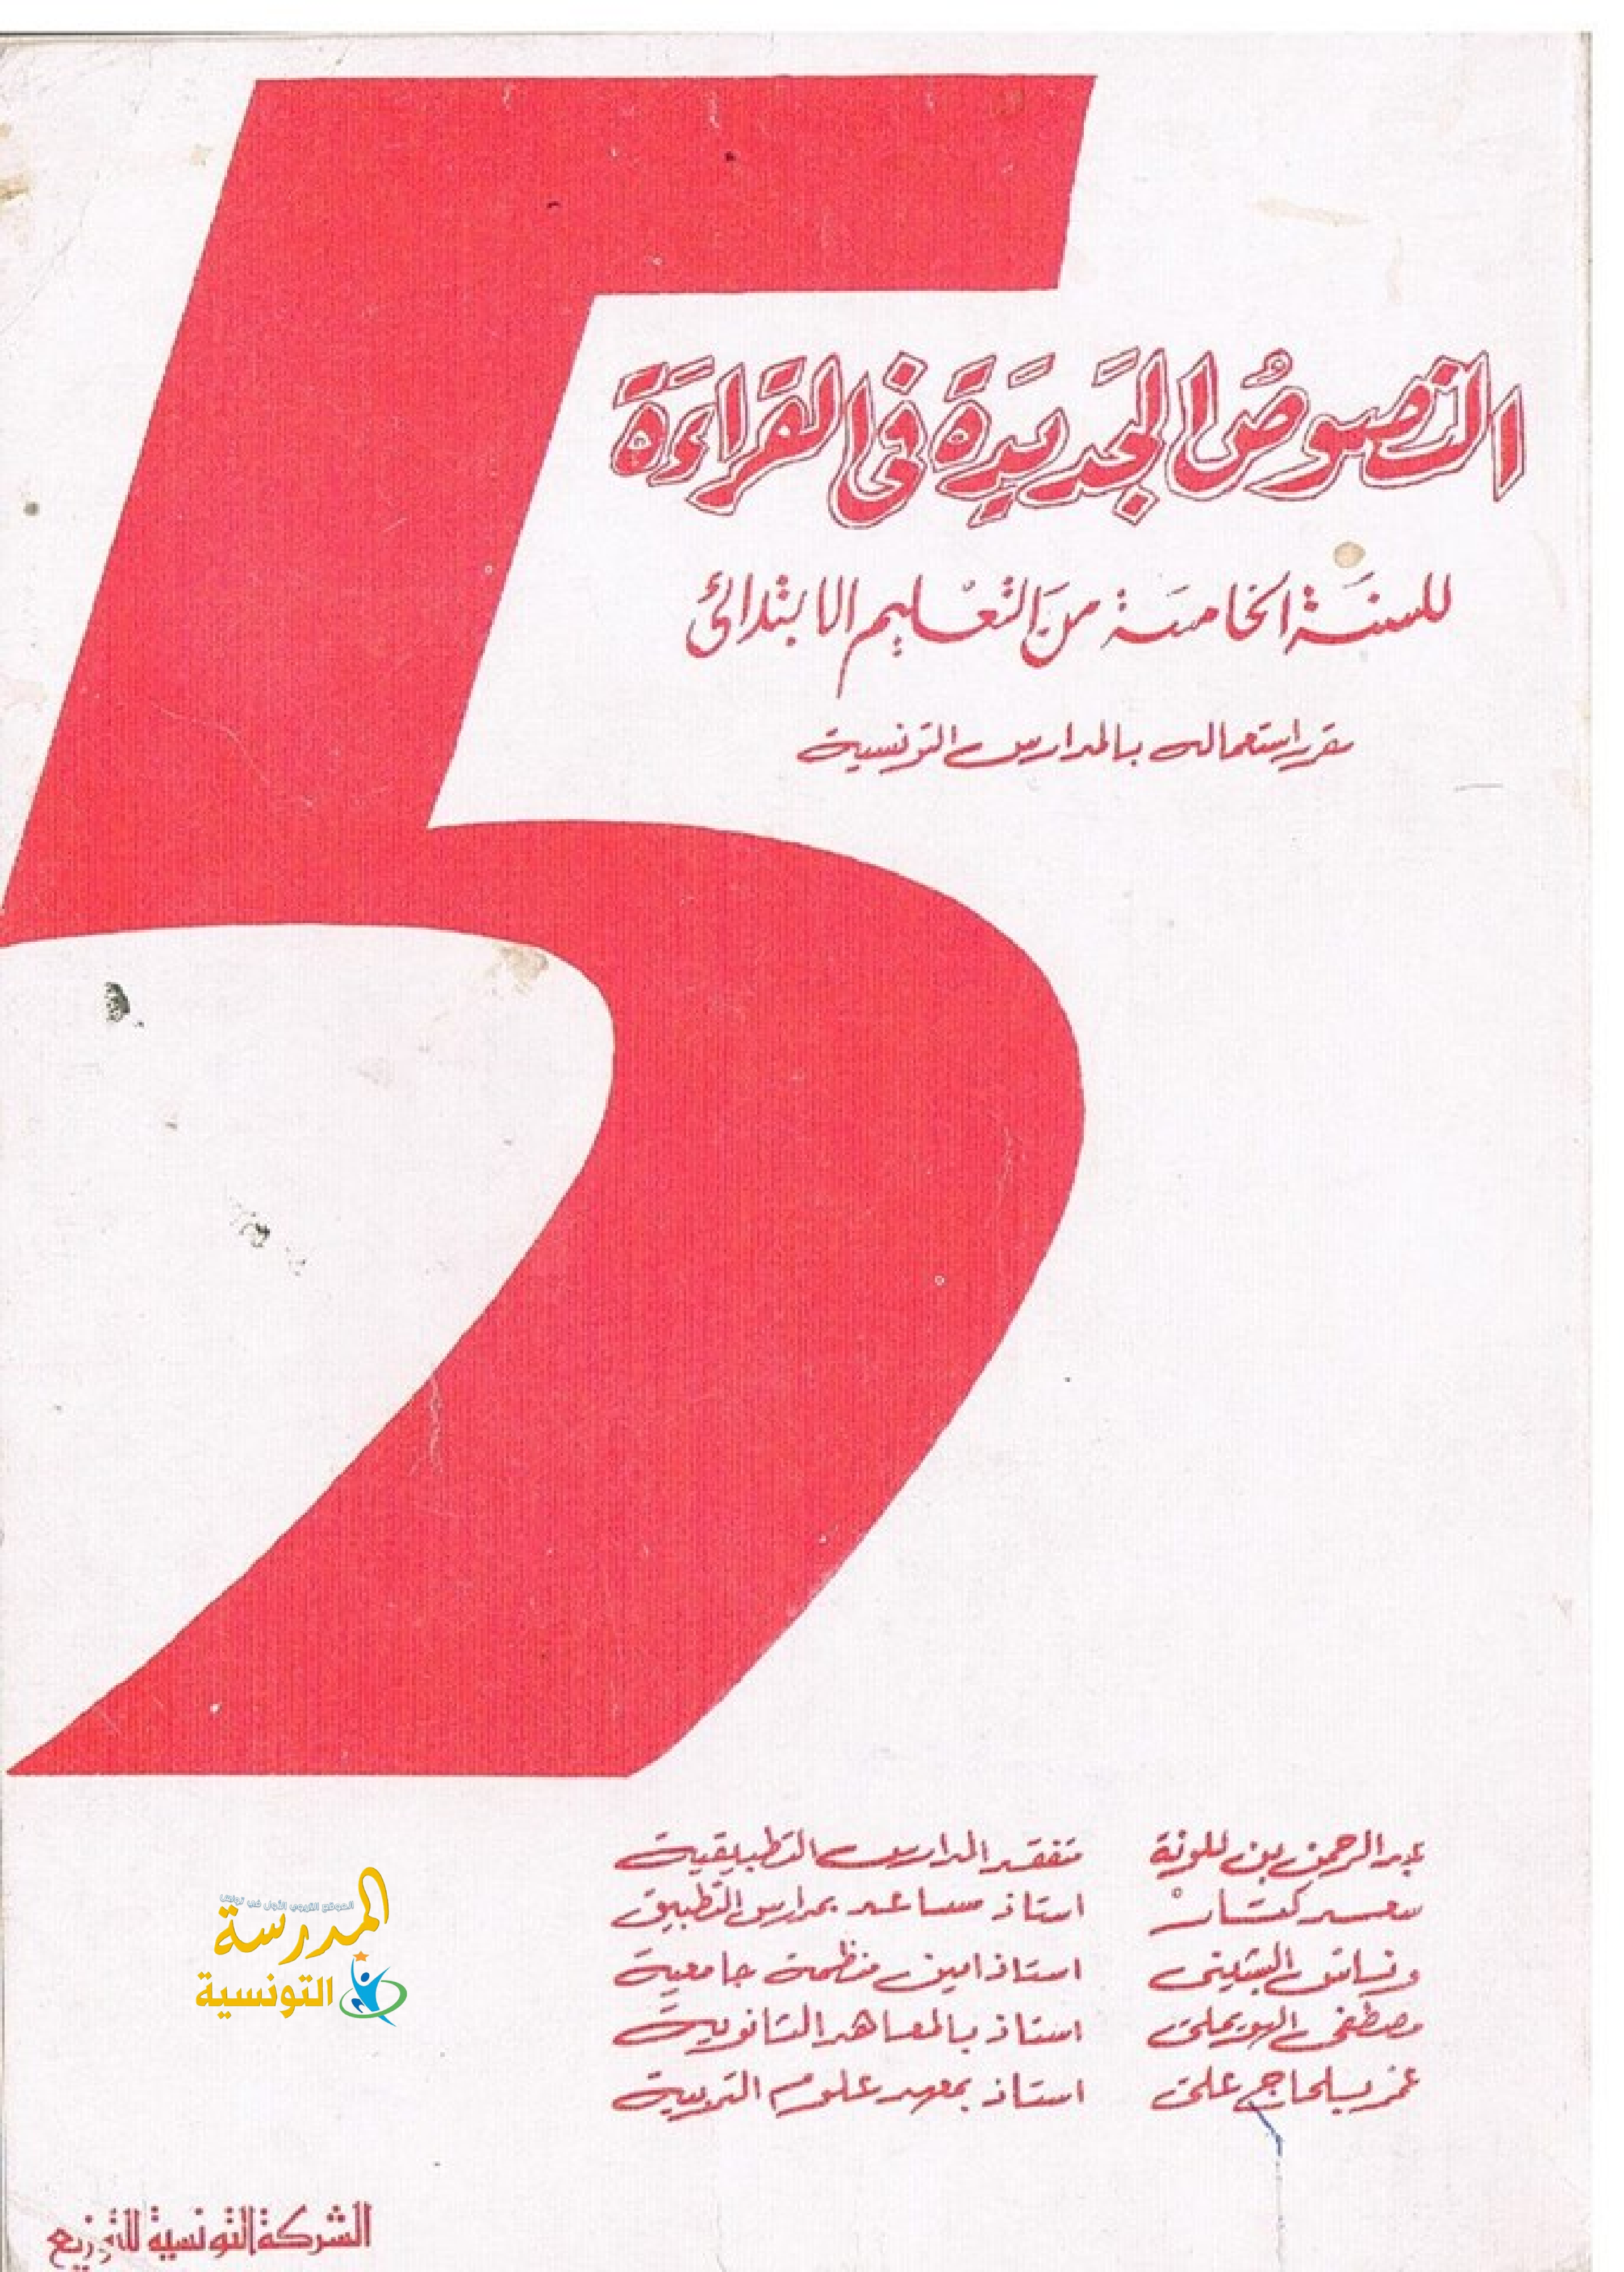 5
النصوصُ الجَديَدَة في القَراءَة
للسنَة الخامسَة منَ التعْليم الابتدائي
مقرر استعماله بالمدارس التونسية
عبد الرحمن بن للونة متفقد المدارس التطبيقية
سعيد كتار استاذ مساعد بمدارس التطبيق
وناس البشيني استاذ امين منظمة جامعية
مصطفى الهويملي استاذ بالمعاهد الثانوية
عمر بلحاج علي استاذ بمعهد علوم التربية
الموقع التربوي الأول في تونس
المدرسة
التونسية
الشركة التونسية للتوزيع